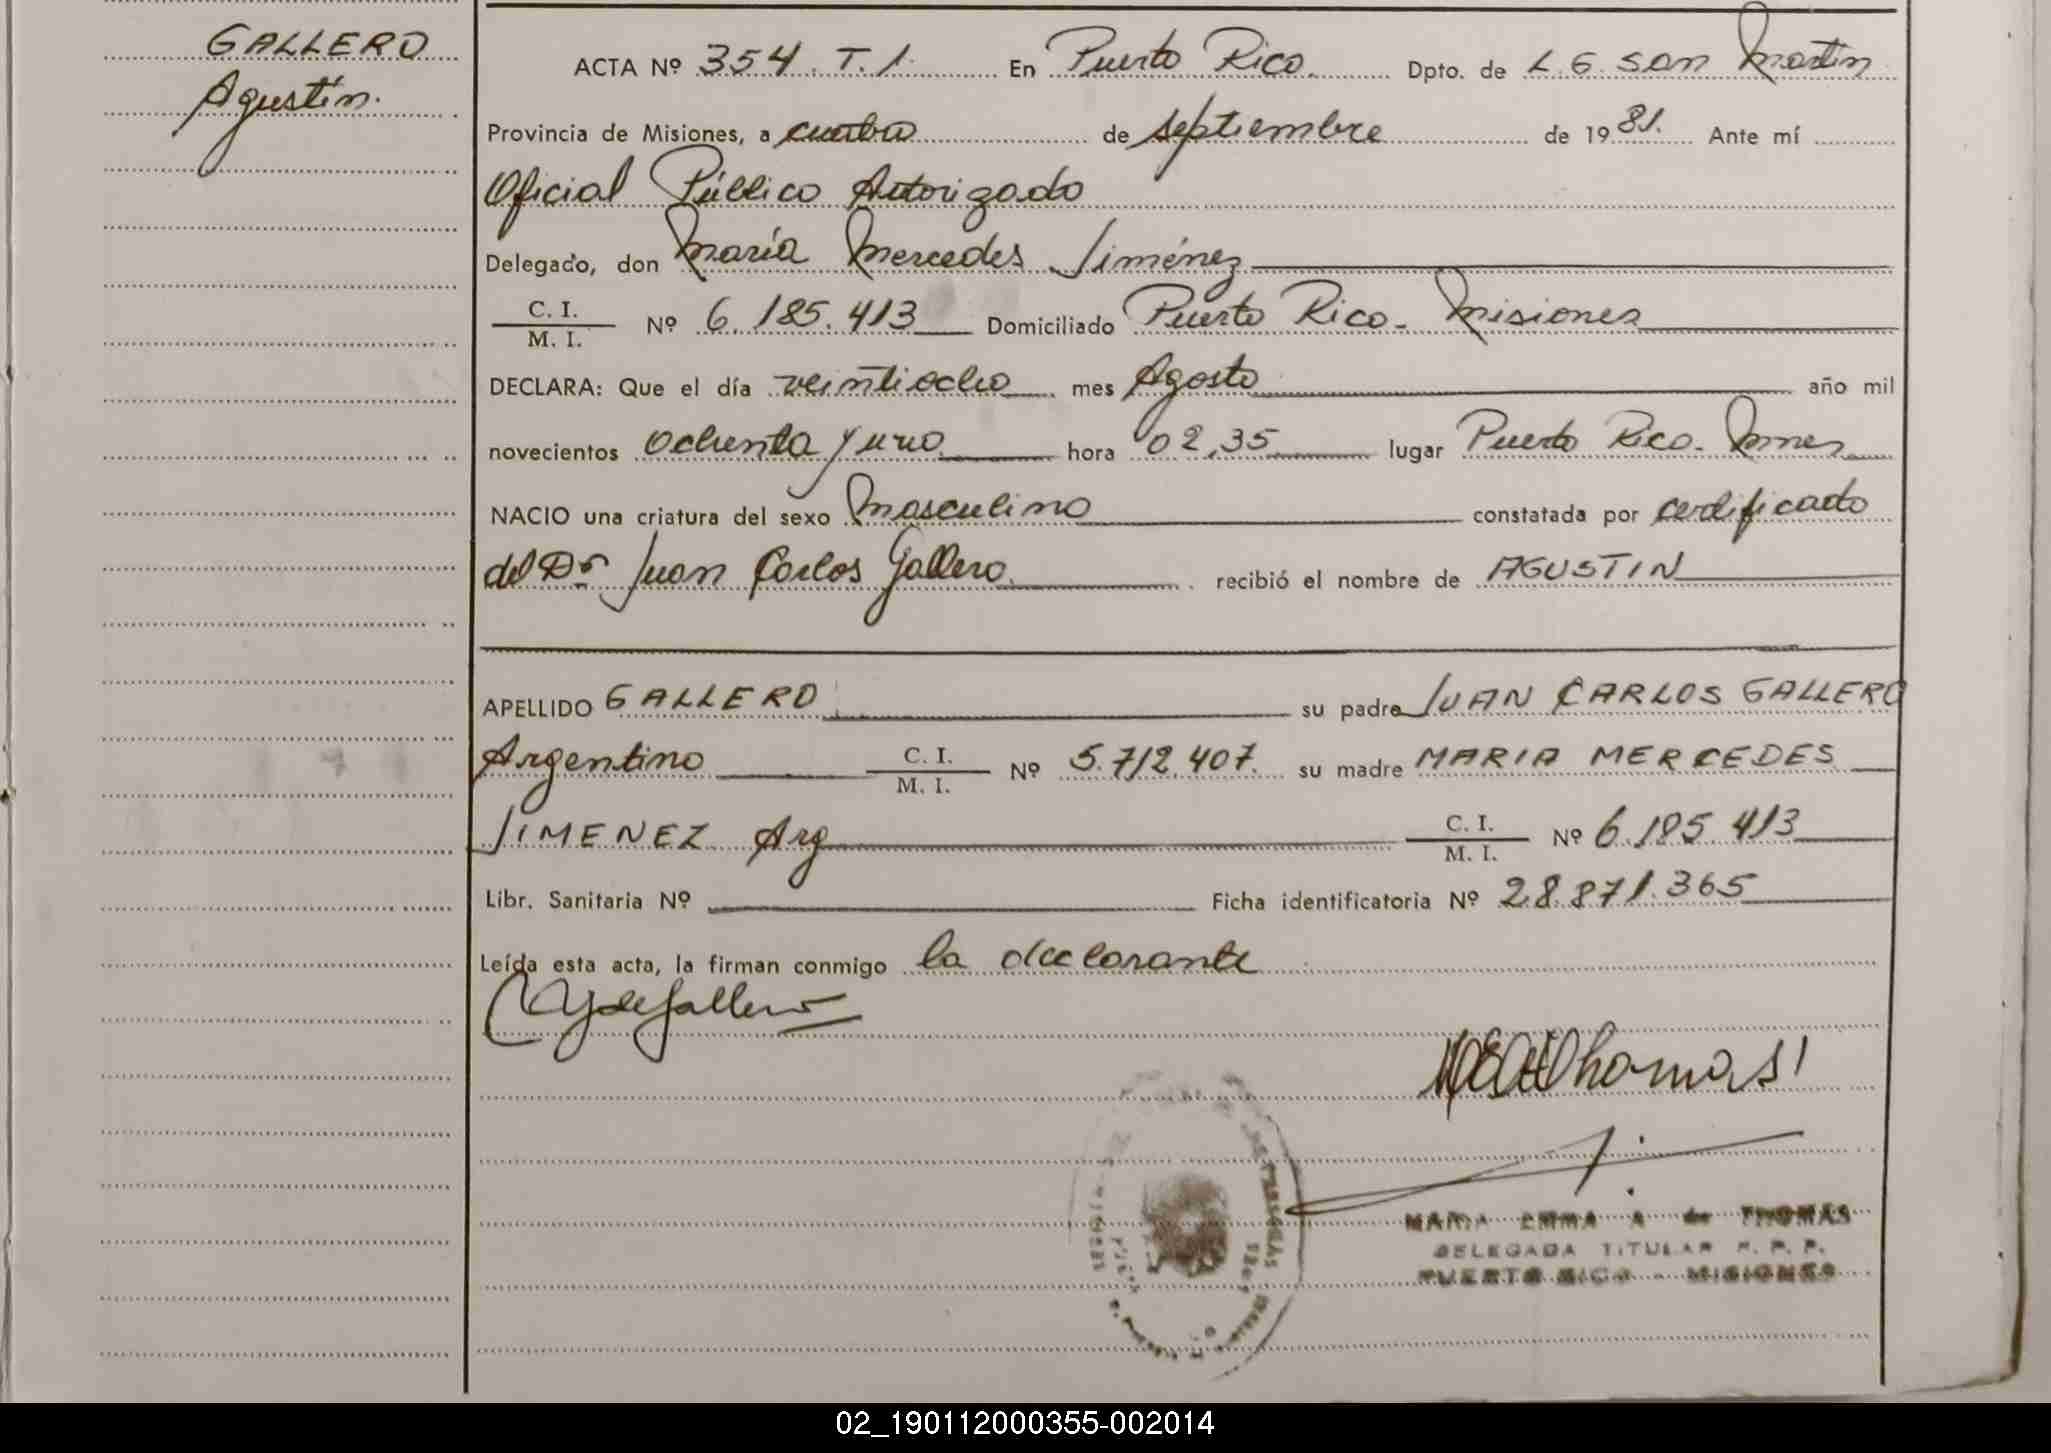 GALLERO
Agustín.
ACTA Nº 354. T. 1. En Puerto Rico. Dpto. de L. G. San Martín
Provincia de Misiones, a cuatro de septiembre de 1981. Ante mí
Oficial Público Autorizado
Delegado, don María Mercedes Jiménez
C. I.
M. I. Nº 6.185.413 Domiciliado Puerto Rico - Misiones
DECLARA: Que el día veintiocho mes Agosto año mil
novecientos ochenta y uno hora 02,35 lugar Puerto Rico. Mnes
NACIO una criatura del sexo masculino constatada por certificado
del Dr Juan Carlos Gallero. recibió el nombre de AGUSTIN
APELLIDO GALLERO su padre JUAN CARLOS GALLERO
Argentino C. I.
M. I. Nº 5.712.407. su madre MARIA MERCEDES
JIMENEZ Arg C. I.
M. I. Nº 6.185.413
Libr. Sanitaria Nº Ficha identificatoria Nº 28.871.365
Leída esta acta, la firman conmigo la declarante
MARIA EMMA A. de THOMAS
DELEGADA TITULAR R. P. P.
PUERTO RICO - MISIONES
02_190112000355-002014